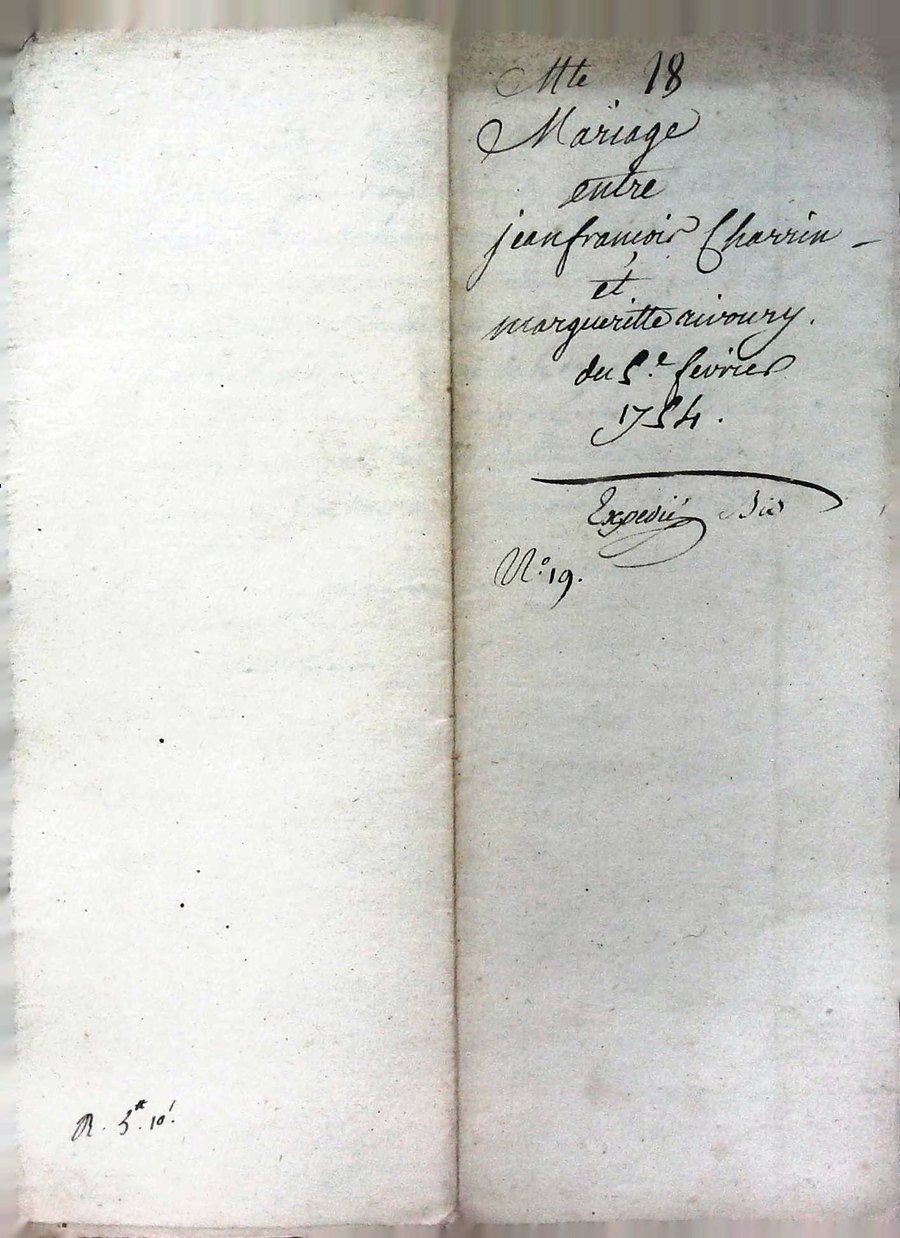 Mte 18
Mariage
entre
jean francois Charrin -
et
margueritte aivoury.
du 5.e fevrier
1754.
Expedié Bis
N.o 19.
R. 5.# 10.s